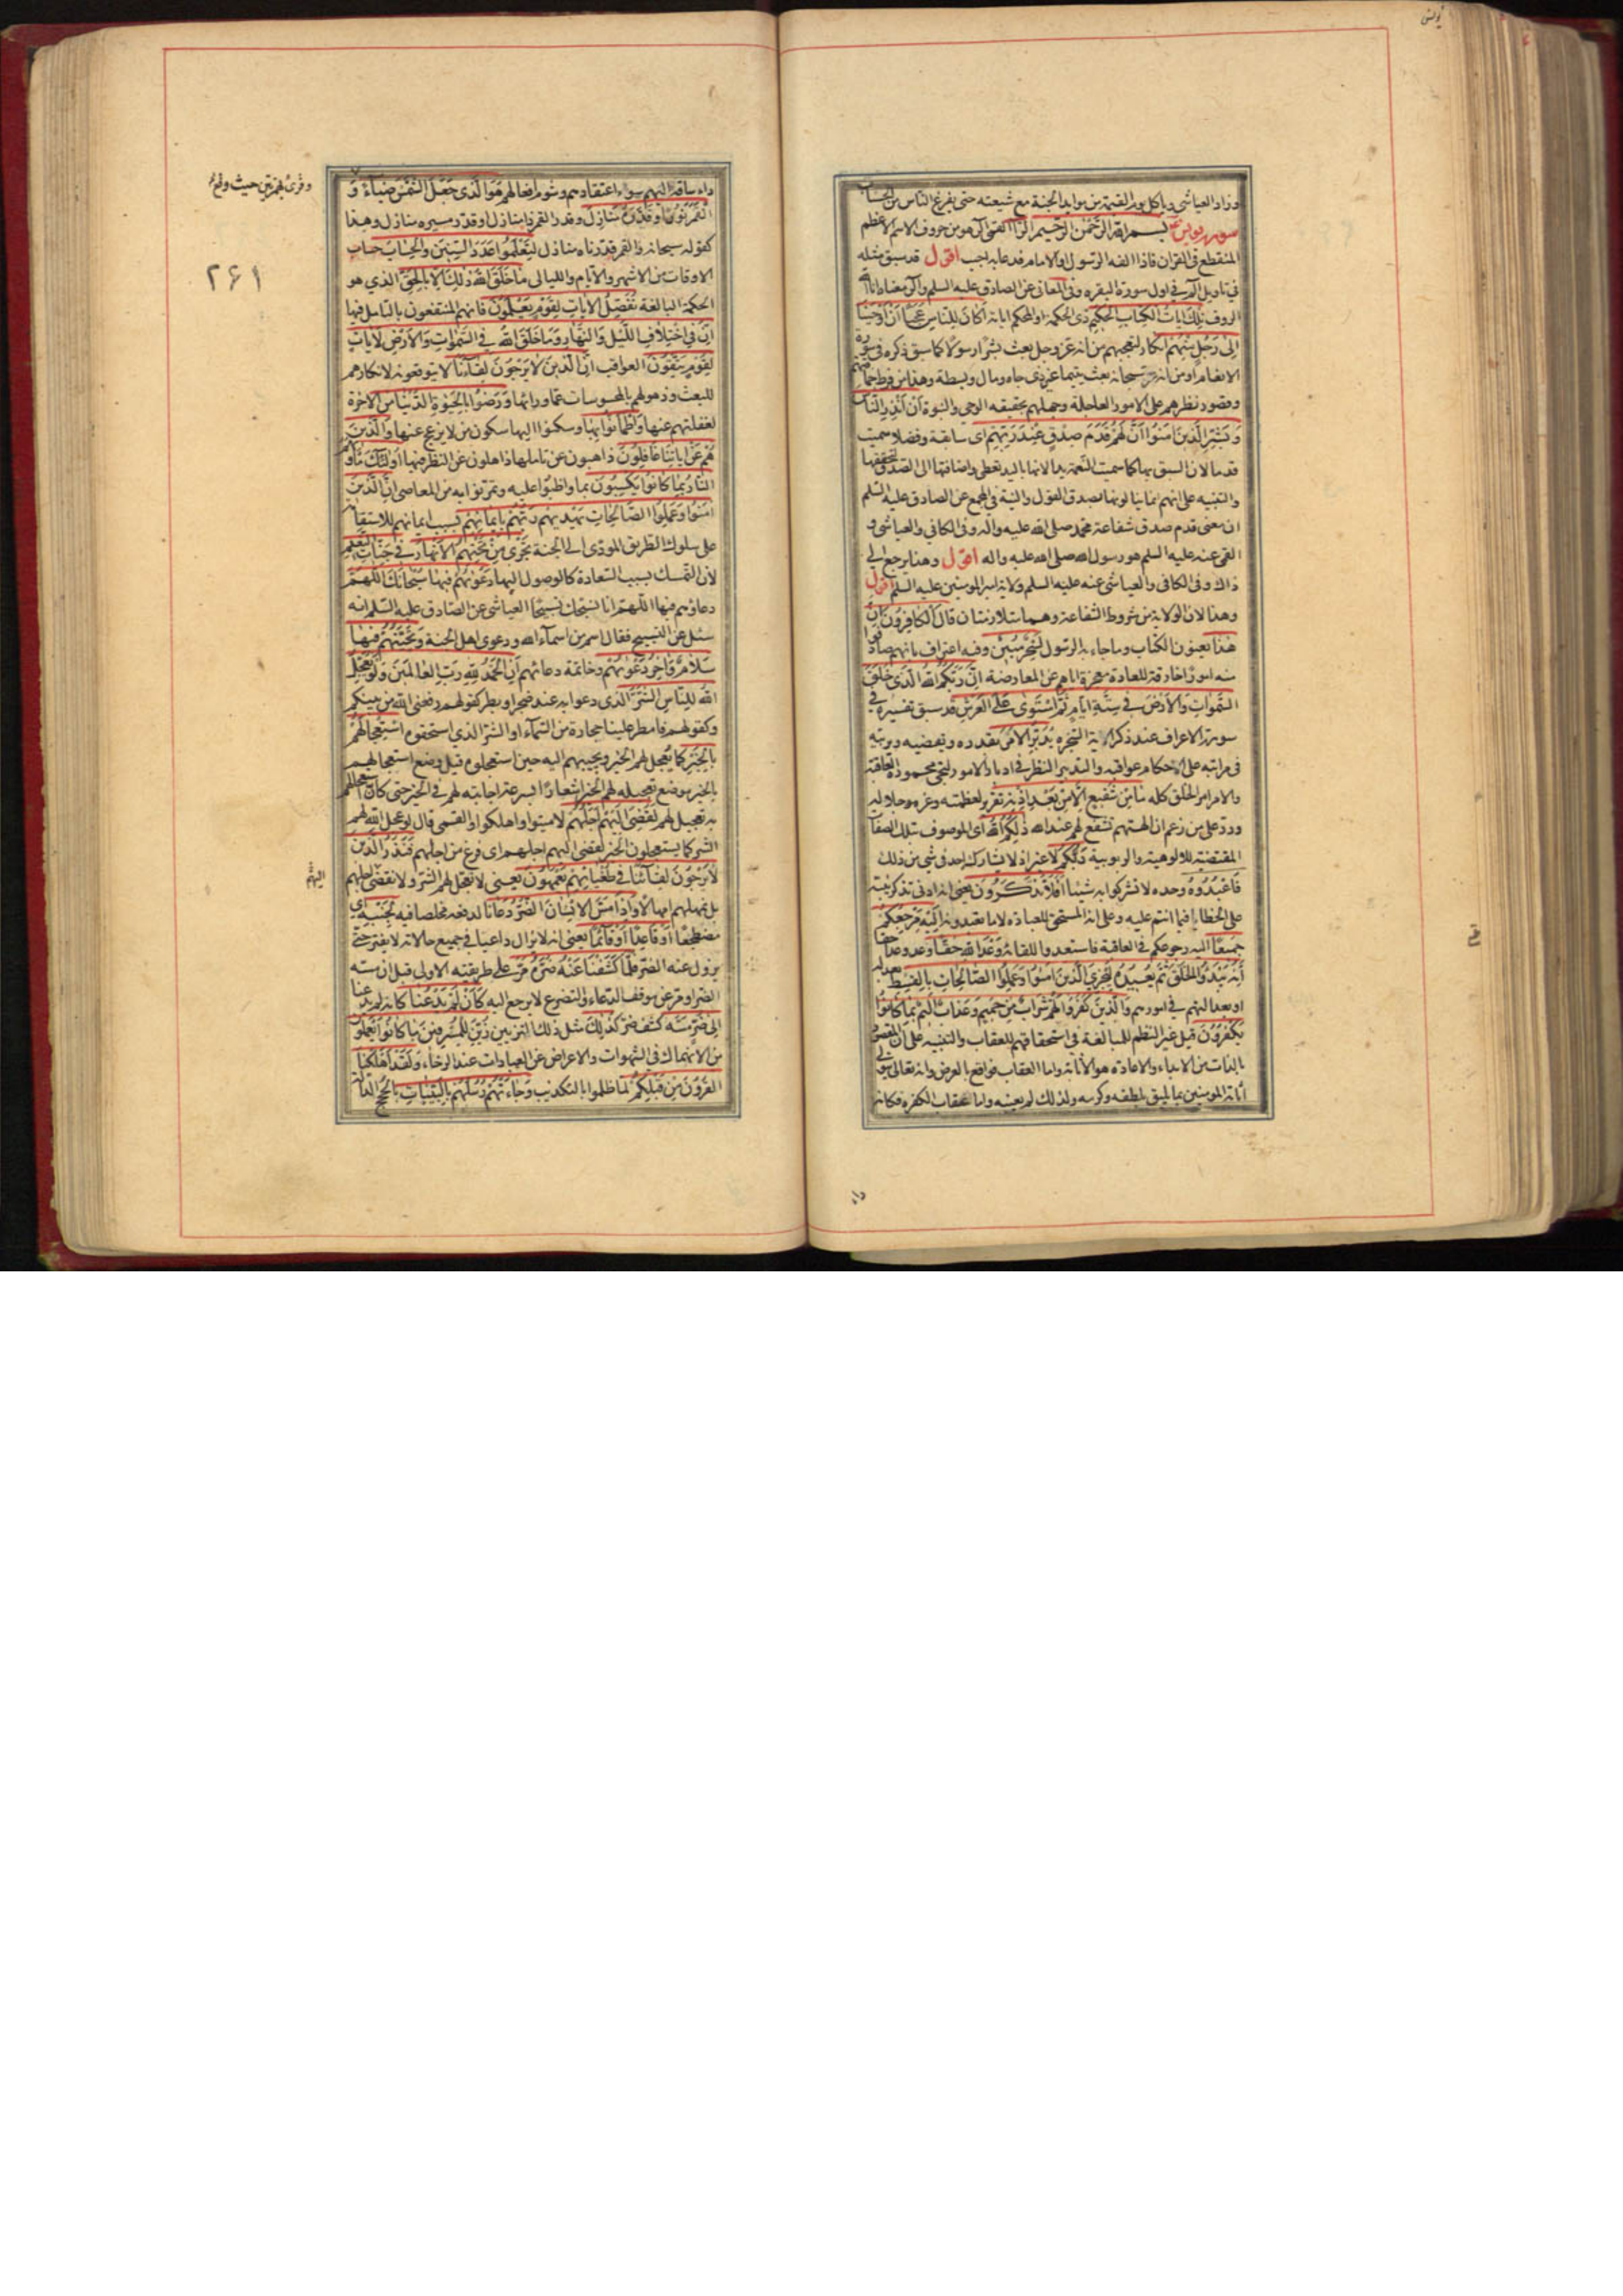 يونس
وزاد العياشي وياكل يوم القيمة من موايد الجنة مع شيعته حتى يفرغ الناس من الحساب
سورة يونس بسم الله الرحمن الرحيم الر القمي الر هو من حروف الاسم الاعظم
المنقطع في القران فاذا الفه الرسول او الامام فدعا به اجيب اقول قد سبق مثله
في تاويل الم في اول سورة البقره وفي المعاني عن الصادق عليه السلم والر معناه انا الله
الروف تلك ايات الكتاب الحكيم ذي الحكمة او المحكم اياته اكان للناس عجبا ان اوحينا
الى رجل منهم انكار لتعجبهم من انه عز وجل بعث بشرا رسولا كما سبق ذكره في سورة
الانعام او من انه سبحانه بعث يتيما غير ذي جاه ومال وبسطة وهذا من فرط حماقتهم
وقصور نظرهم على الامور العاجلة وجهلهم بحقيقة الوحي والنبوة ان انذر الناس
وبشر الذين امنوا ان لهم قدم صدق عند ربهم اي سابقة وفضلا سميت
قدما لان السبق بها كما سميت النعمة يدا لانها باليد تعطى واضافتها الى الصدق لتحققها
والتنبيه على انهم انما ينالونها بصدق القول والنية في المجمع عن الصادق عليه السلم
ان معنى قدم صدق شفاعة محمد صلى الله عليه واله وفي الكافي والعياشي و
القمي عنه عليه السلم هو رسول الله صلى الله عليه واله اقول وهذا يرجع الى
ذاك وفي الكافي والعياشي عنه عليه السلم ولاية امير المومنين عليه السلم اقول
وهذا لان الولاية من شروط الشفاعة وهما متلازمتان قال الكافرون ان
هذا يعنون الكتاب وما جاء به الرسول لسحر مبين وفيه اعتراف بانهم صادفوا
منه امورا خارقة للعادة معجزة اياهم عن المعارضة ان ربكم الله الذي خلق
السموات والارض في ستة ايام ثم استوى على العرش قد سبق تفسيره في
سورة الاعراف عند ذكر اية السخره يدبر الامر يقدره ويقضيه ويرتبه
في مراتبه على احكام عواقبه والتدبير النظر في ادبار الامور لتجئ محمودة العاقبة
والامر امر الخلق كله ما من شفيع الا من بعد اذنه تقرير لعظمته وعزه وجلاله
ورد على من زعم ان الهتهم تشفع لهم عند الله ذلكم الله اي الموصوف بتلك الصفات
المقتضية للالوهية والربوبية ربكم لا غير اذ لا يشاركه احد في شي من ذلك
فاعبدوه وحده لا تشركوا به شيئا افلا تذكرون يعني انه ادنى تذكر ينبه
على الخطا فيما انتم عليه وعلى انه المستحق للعبادة لا ما تعبدونه اليه مرجعكم
جميعا اليه رجوعكم في العاقبة فاستعدوا للقائه وعد الله حقا وعد وعدا حقا
انه يبدؤ الخلق ثم يعيده ليجزي الذين امنوا وعملوا الصالحات بالقسط بعدله
او بعدالتهم في امورهم والذين كفروا لهم شراب من حميم وعذاب اليم بما كانوا
يكفرون قيل غير النظم للمبالغة في استحقاقهم للعقاب والتنبيه على ان المقصود
بالذات من الابداء والاعادة هو الاثابة واما العقاب فواقع بالعرض وانه تعالى يتولى
اثابة المومنين بما يليق بلطفه وكرمه ولذلك لم يعينه واما عقاب الكفره فكانه
داء
داء ساقه اليهم سوء اعتقادهم وشوم افعالهم هو الذي جعل الشمس ضياء و
القمر نورا وقدره منازل وقدر القمر ذا منازل او قدر مسيره منازل وهذا
كقوله سبحانه والقمر قدرناه منازل لتعلموا عدد السنين والحساب حساب
الاوقات من الاشهر والايام والليالي ما خلق الله ذلك الا بالحق الذي هو
الحكمة البالغة نفصل الايات لقوم يعلمون فانهم المنتفعون بالتامل فيها
ان في اختلاف الليل والنهار وما خلق الله في السموات والارض لايات
لقوم يتقون العواقب ان الذين لا يرجون لقاءنا لا يتوقعونه لانكارهم
للبعث وذهولهم بالمحسوسات عما ورائها ورضوا بالحيوة الدنيا من الاخرة
لغفلتهم عنها واطمانوا بها وسكنوا اليها سكون من لا يزعج عنها والذين
هم عن اياتنا غافلون ذاهبون عن تاملها ذاهلون عن النظر فيها اولئك ماويهم
النار بما كانوا يكسبون بما واظبوا عليه وتمرنوا به من المعاصي ان الذين
امنوا وعملوا الصالحات يهديهم ربهم بايمانهم بسبب ايمانهم للاستقامة
على سلوك الطريق المودي الى الجنة تجري من تحتهم الانهار في جنات النعيم
لان التمسك بسبب السعادة كالوصول اليها دعويهم فيها سبحانك اللهم
دعاؤهم فيها اللهم انا نسبحك تسبيحا العياشي عن الصادق عليه السلم انه
سئل عن التسبيح فقال اسم من اسماء الله ودعوى اهل الجنة وتحيتهم فيها
سلام واخر دعويهم وخاتمة دعائهم ان الحمد لله رب العالمين ولو يعجل
الله للناس الشر الذي دعوا به عند ضجر او بطر كقولهم رفعني الله من بينكم
وكقولهم فامطر علينا حجارة من السماء او الشر الذي استحقوه استعجالهم
بالخير كما يعجل لهم الخير ويجيبهم اليه حين استعجلوه قيل وضع استعجالهم
بالخير موضع تعجيله لهم الخير اشعارا بسرعة اجابته لهم في الخير حتى كان استعجالهم
به تعجيل لهم لقضي اليهم اجلهم لاميتوا واهلكوا والقمي قال لو عجل الله لهم
الشر كما يستعجلون الخير لقضي اليهم اجلهم اي فرغ من اجلهم فنذر الذين
لا يرجون لقاءنا في طغيانهم يعمهون يعني لا نعجل لهم الشر ولا نقضي اجلهم
بل نمهلهم امهالا واذا مس الانسان الضر دعانا لدفعه مخلصا فيه لجنبه اي
مضطجعا او قاعدا او قائما يعني انه لا يزال داعيا في جميع حالاته لا يفتر حتى
يزول عنه الضر فلما كشفنا عنه ضره مر على طريقته الاولى قبل ان مسه
الضر او مر عن موقف الدعاء والتضرع لا يرجع اليه كان لم يدعنا كانه لم يدعنا
الى ضر مسه كشف ضر كذلك مثل ذلك التزيين زين للمسرفين ما كانوا يعملون
من الانهماك في الشهوات والاعراض عن العبادات عند الرخاء ولقد اهلكنا
القرون من قبلكم لما ظلموا بالتكذيب وجاءتهم رسلهم بالبينات بالحجج الدالة
وقرئ بهمزتين حيث وقع
۲۶۱
اليهم